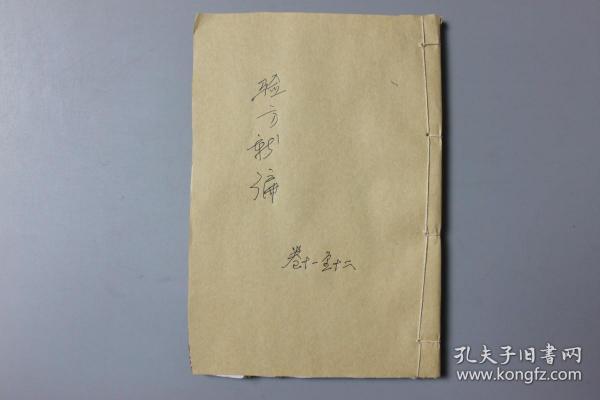 验方新编
卷十一至十二
孔夫子旧書网
www.kongfz.com